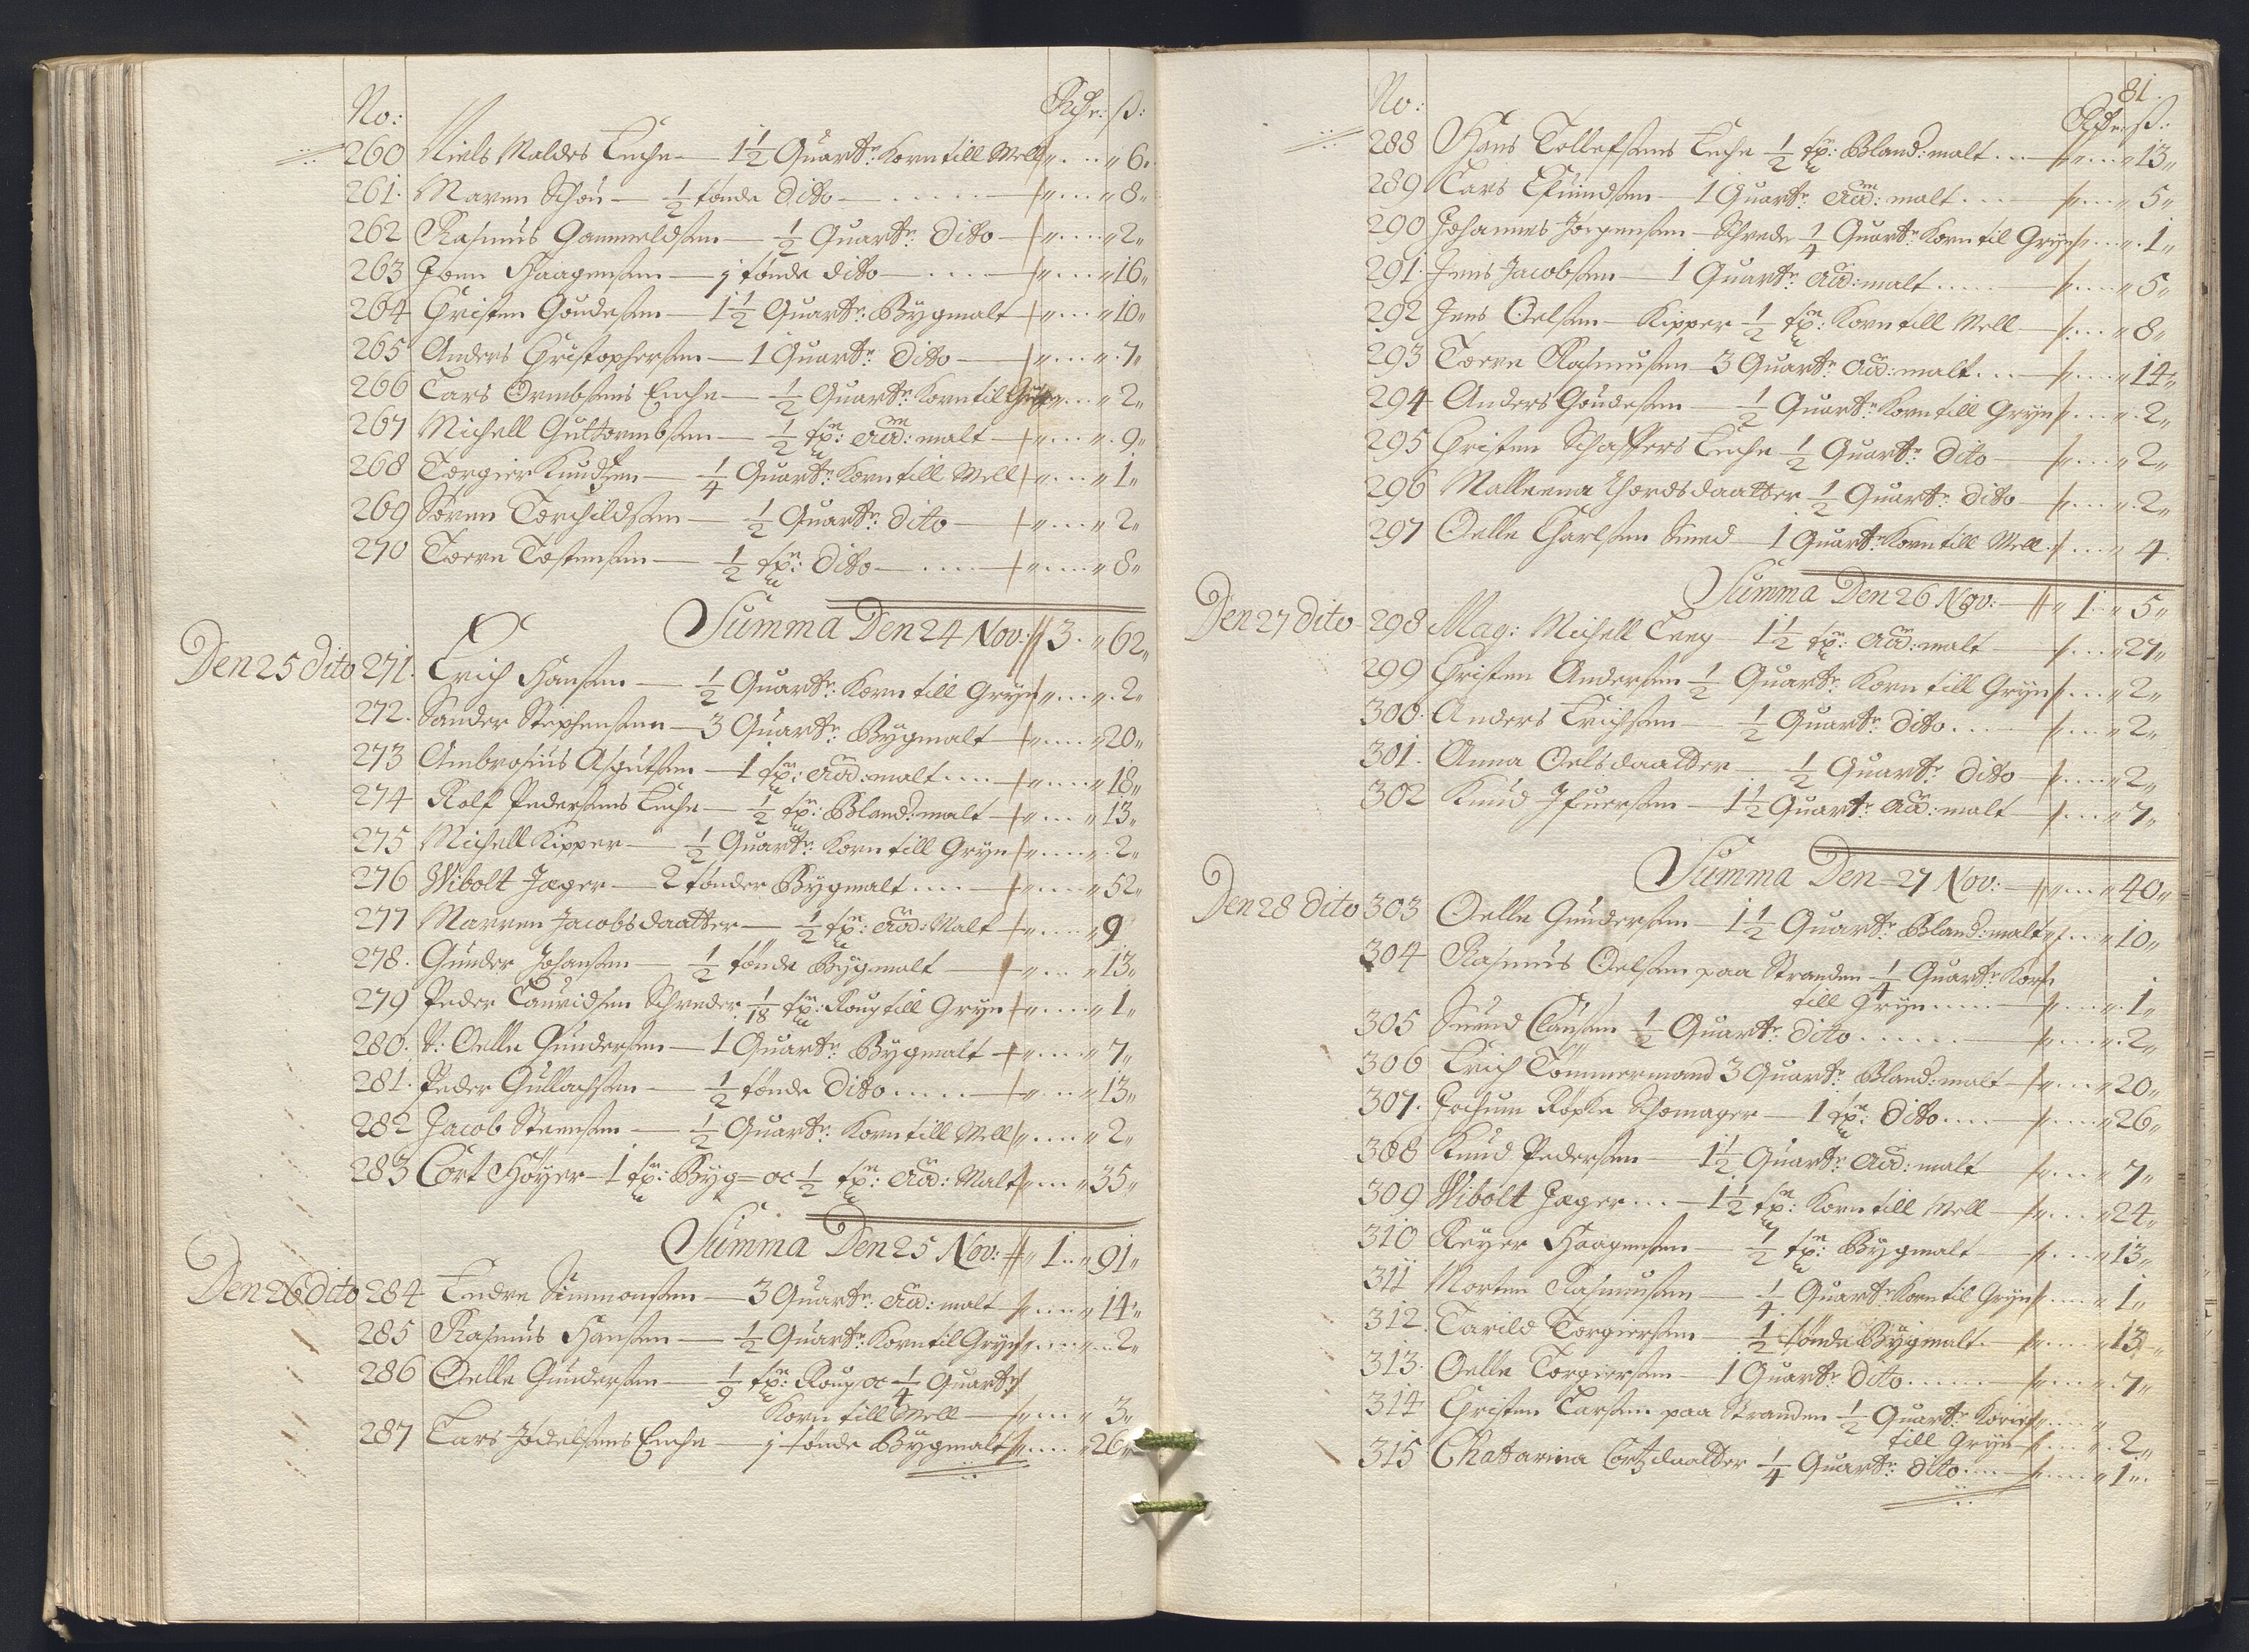 No: Rdr: ß:
260 Niels Maldes Encke — 1½ Quartr: Korn till Mell „ .... „ 6„
261. Maren Schou — ½ tönde dito — „ .... „ 8„
262 Rasmus Gammeldsen — ½ Quartr: dito — „ .... „ 2„
263 Joen Haagensen — 1 tönde dito — „ .... „ 16„
264 Christen Goudesen — 1½ Quartr: Bÿgmalt — „ .... „ 10„
265 Anders Christophersen — 1 Quartr: dito — „ .... „ 7„
266 Lars Ormbsens Encke — ½ Quartr: Korn til Grÿn „ .... „ 2„
267 Michell Guttormbsen — ½ tn: Aud: malt — „ .... „ 9„
268 Torgier Knudsen — ¼ Quartr: Korn till Mell „ .... „ 1„
269 Sören Torchildsen — ½ Quartr: dito — „ .... „ 2„
270 Torre Tostensen — ½ tn: dito — „ .... „ 8„
Summa Den 24 Nov: 3 . „ 62„
Den 25 dito 271. Erich Hansen — ½ Quartr: Korn till Grÿn „ .... „ 2„
272. Sander Stephensen — 3 Quartr: Bÿgmalt — „ .... „ 20„
273 Ambrosius Asgutsen — 1 tn: Aud: malt .... „ .... „ 18„
274 Rolf Pedersens Encke — ½ tn: Bland: malt — „ .... „ 13„
275 Michell Kipper — ½ Quartr: Korn till Grÿn „ .... „ 2„
276 Wibolt Jæger — 2 tönder Bÿgmalt .... „ .... „ 52„
277 Marren Jacobsdaatter — ½ tn: Aud: Malt — „ .... „ 9
278. Gunder Johansen — ½ tönde Bÿgmalt — „ .... „ 13„
279 Peder Lauridsen Schreder 1/18 tn: Roug till Grÿn — „ .... „ 1„
280. S: Oelle Gundersen — 1 Quartr: Bÿgmalt — „ .... „ 7„
281. Peder Gullachsen — ½ tönde dito ..... „ .... „ 13„
282 Jacob Steensen — ½ Quartr: Korn till Mell „ .... „ 2„
283 Cort Höÿer — 1 tn: Bÿg= oc ½ tn: Aud: Malt „ .... „ 35„
Summa Den 25 Nov: „ 1 .. „ 91„
Den 26 dito 284 Endre Simmonsen — 3 Quartr: Aud: malt „ .... „ 14„
285 Rasmus Hansen — ½ Quartr: Korn til Grÿn „ .... „ 2„
286 Oelle Gundersen — 1/9 tn: Roug oc ¼ Quartr:
Korn till Mell — „ .... „ 3„
287 Lars Joelsens Encke — 1 tönde Bÿgmalt „ .... „ 26„
81.
No: Rdr: ß:
288 Hans Tollefsens Encke ½ tn: Bland: malt ... „ .... „ 13„
289 Lars Efuindsen — 1 Quartr: Aud: malt .... „ .... „ 5„
290 Johannes Jörgensen Schrede ¼ Quartr: Korn til Grÿn „ .... „ 1„
291. Jens Jacobsen — 1 Quartr: Aud: malt ..... „ .... „ 5„
292 Jens Oelsen Kipper ½ tn: Korn till Mell — „ .... „ 8„
293 Torre Rasmusen 3 Quartr: Aud: malt ... „ .... „ 14„
294 Anders Goudesen — ½ Quartr: Korn till Grÿn „ .... „ 2„
295 Christen Schaffers Encke ½ Quartr: dito — „ .... „ 2„
296 Malleena Thordsdaatter ½ Quartr: dito — „ .... „ 2„
297 Oelle Charlsen Smed — 1 Quartr: Korn till Mell „ .... „ 4
Summa Den 26 Nov: — „ 1 .. „ 5„
Den 27 dito 298 Mag: Michell Leeg 1½ tn: Aud: malt — „ .... „ 27„
299 Christen Andersen ½ Quartr: Korn till Grÿn „ .... „ 2„
300. Anders Erichsen — ½ Quartr: dito .... „ .... „ 2„
301. Anna Oelsdaatter — ½ Quartr: dito — „ .... „ 2„
302 Knud Ifuersen — 1½ Quartr: Aud: malt — „ .... „ 7„
Summa Den 27 Nov: — „ .... „ 40„
Den 28 dito 303 Oelle Gundersen — 1½ Quartr: Bland: malt „ .... „ 10„
304 Rasmus Oelsen paa Stranden ¼ Quartr: Korn
till Grÿn .... „ .... „ 1„
305 Suend Clausen ½ Quartr: dito ...... „ .... „ 2„
306 Erich Tömmermand 3 Quartr: Bland: malt — „ .... „ 20„
307. Jochum Röpke Schomager — 1 tn: dito .... „ .... „ 26„
308 Knud Pedersen — 1½ Quartr: Aud: malt — „ .... „ 7„
309 Wibolt Jæger ... — 1½ tn: Korn till Mell — „ .... „ 24„
310 Reÿer Haagensen — ½ tn: Bÿgmalt — „ .... „ 13„
311 Morten Rasmusen — ¼ Quartr: Korn til Grÿn „ .... „ 1„
312. Tarild Torgiersen — ½ tönde Bÿgmalt — „ .... „ 13„
313. Oelle Torgiersen — 1 Quartr: dito ...... „ .... „ 7„
314 Christen Larsen paa Stranden ½ Quartr: Korn
till Grÿn — „ .... „ 2„
315 Chatarina Cortzdaatter ¼ Quartr: dito .... „ .... „ 1„